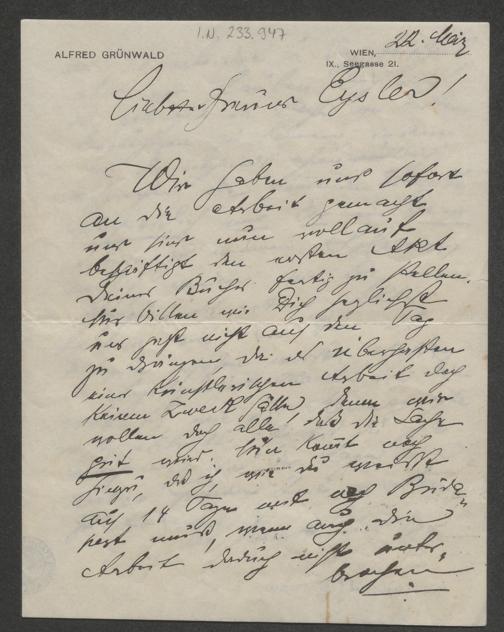 I.N. 233.947
ALFRED GRÜNWALD
WIEN, 22. März
IX., Seegasse 21.
Liebster Freund Eysler!
Wir haben uns sofort
an die Arbeit gemacht
und sind nun vollauf
beschäftigt den ersten Akt
Deines Buches fertig zu stellen.
Nur bitten wir Dich
uns jetzt nicht auf den Tag
zu drängen, da das überhasten
einer künstlerischen Arbeit doch
keinen Zweck hätte, denn wir
wollen doch alle, daß die Sache
gut wird. Nun kommt noch
hinzu, daß ich, wie Du weißt
auf 14 Tage nach Buda-
pest muß, wenn auch die
Arbeit dadurch nicht unter-
brochen